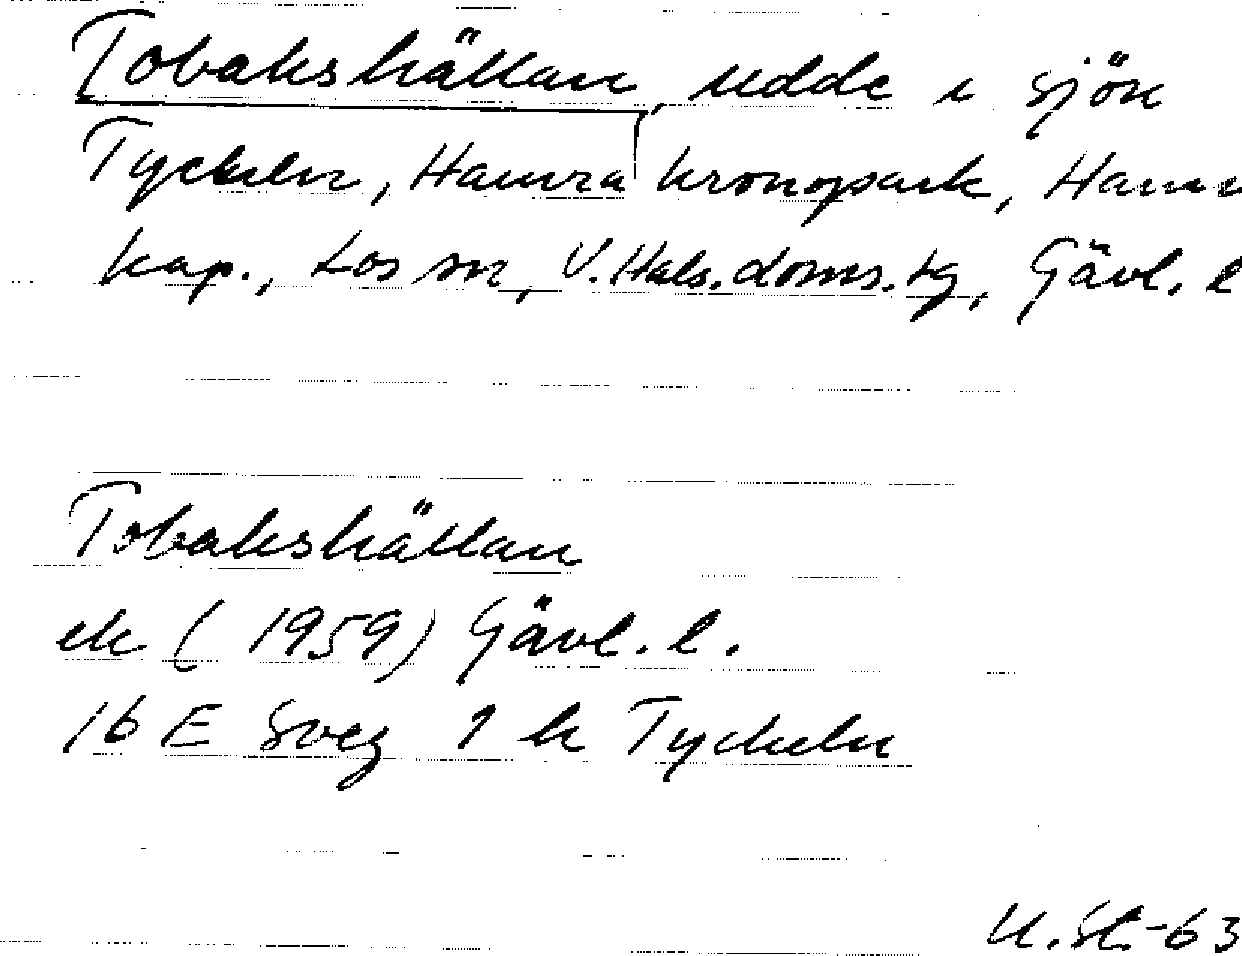 Tobakshällan, udde i sjön
Tyckeln, Hamra kronopark, Hamr
kap., Los sn, V. Häls. doms. tg, Gävl. l
Tobakshällan
ek (1959) Gävl. l.
16 E Sveg 1 h Tyckeln
U. St. -63